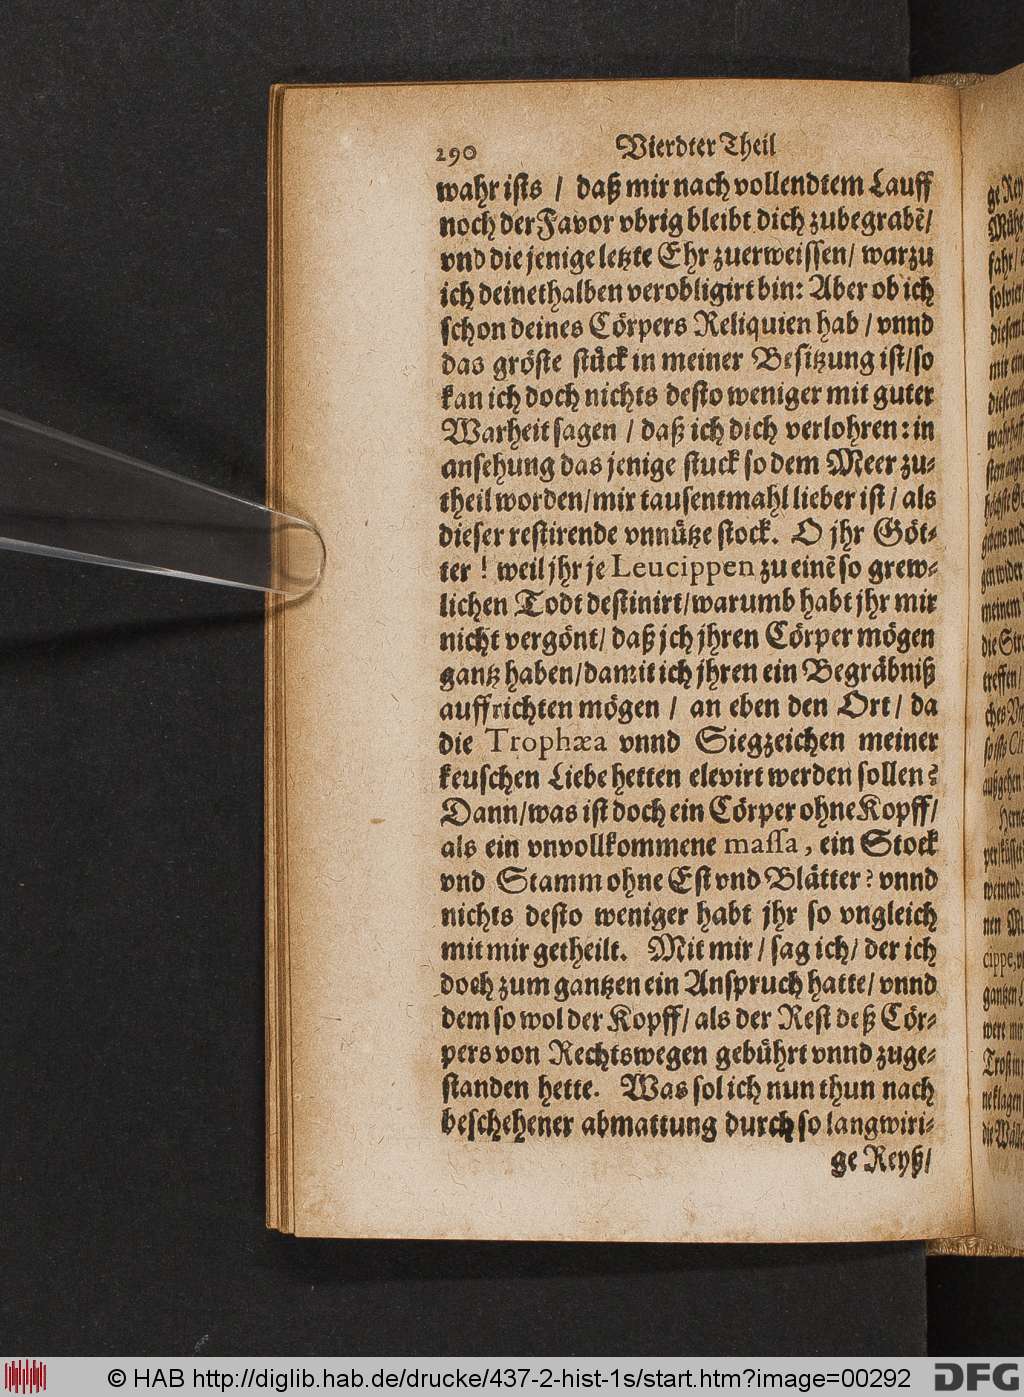 290 Vierdter Theil
wahr ists / daß mir nach vollendtem Lauff
noch der Favor vbrig bleibt dich zubegrabē/
vnd die jenige letzte Ehr zuerweissen/ warzu
ich deinethalben verobligirt bin: Aber ob ich
schon deines Cörpers Reliquien hab / vnnd
das gröste stück in meiner Besitzung ist/so
kan ich doch nichts desto weniger mit guter
Warheit sagen / daß ich dich verlohren: in
ansehung das jenige stuck so dem Meer zu-
theil worden/mir tausentmahl lieber ist / als
dieser restirende vnnütze stock. O jhr Göt-
ter ! weil jhr je Leucippen zu einē so grew-
lichen Todt destinirt/warumb habt jhr mir
nicht vergönt/ daß jch jhren Cörper mögen
gantz haben/damit ich jhren ein Begräbniß
auffrichten mögen / an eben den Ort / da
die Trophæa vnnd Siegzeichen meiner
keuschen Liebe hetten elevirt werden sollen?
Dann/was ist doch ein Cörper ohne Kopff/
als ein vnvollkommene massa, ein Stock
vnd Stamm ohne Est vnd Blätter? vnnd
nichts desto weniger habt jhr so vngleich
mit mir getheilt. Mit mir / sag ich/ der ich
doch zum gantzen ein Anspruch hatte/ vnnd
dem so wol der Kopff/ als der Rest deß Cör-
pers von Rechtswegen gebührt vnnd zuge-
standen hette. Was sol ich nun thun nach
beschehener abmattung durch so langwiri-
ge Reyß/
© HAB http://diglib.hab.de/drucke/437-2-hist-1s/start.htm?image=00292 DFG